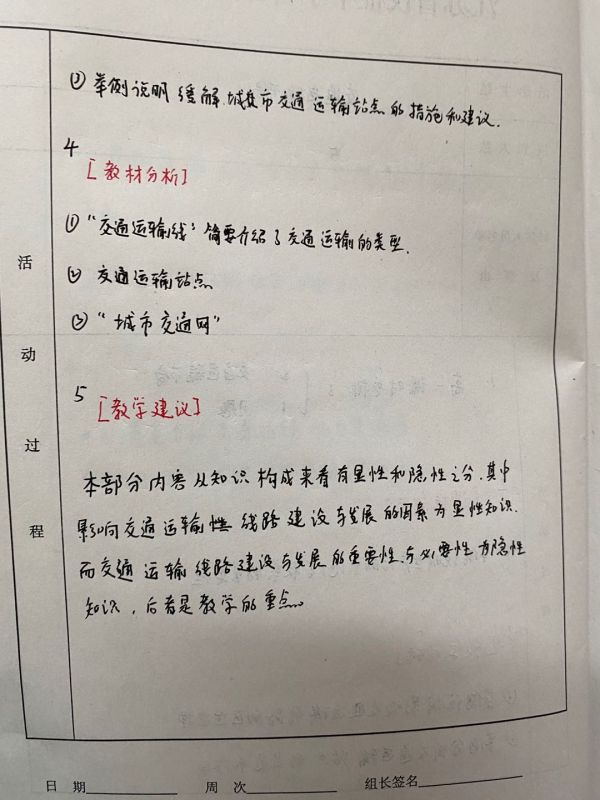 ② 举例说明缓解城市交通运输站点的措施和建议.
4
[教材分析]
① “交通运输线”简要介绍了交通运输的类型.
② 交通运输站点
③ “城市交通网”
5
[教学建议]
本部分内容从知识构成来看有显性和隐性之分.其中
影响交通运输 线路建设与发展的因素为显性知识.
而交通运输线路建设与发展的重要性与必要性为隐性
知识,后者是教学的重点。
活
动
过
程
日 期 周 次 组长签名